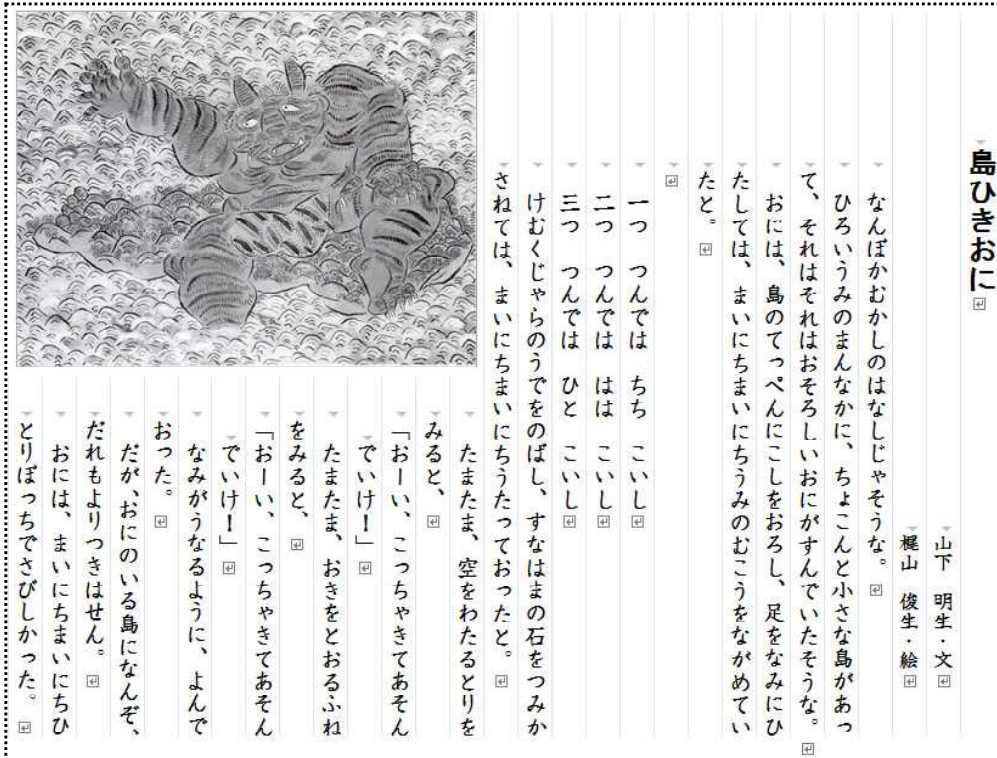 島ひきおに
山下　明生・文
梶山　俊生・絵
なんぼかむかしのはなしじゃそうな。
ひろいうみのまんなかに、ちょこんと小さな島があっ
て、それはそれはおそろしいおにがすんでいたそうな。
おには、島のてっぺんにこしをおろし、足をなみにひ
たしては、まいにちまいにちうみのむこうをながめてい
たと。
一つ　つんでは　ちち　こいし
二つ　つんでは　はは　こいし
三つ　つんでは　ひと　こいし
けむくじゃらのうでをのばし、すなはまの石をつみか
さねては、まいにちまいにちうたっておったと。
たまたま、空をわたるとりを
みると、
「おーい、こっちゃきてあそん
でいけ！」
たまたま、おきをとおるふね
をみると、
「おーい、こっちゃきてあそん
でいけ！」
なみがうなるように、よんで
おった。
だが、おにのいる島になんぞ、
だれもよりつきはせん。
おには、まいにちまいにちひ
とりぼっちでさびしかった。